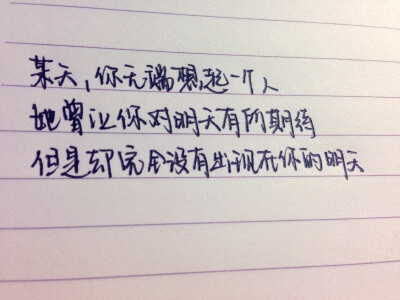 某天，你无端想起一个人
她曾让你对明天有所期待
但是却完全没有出现在你的明天